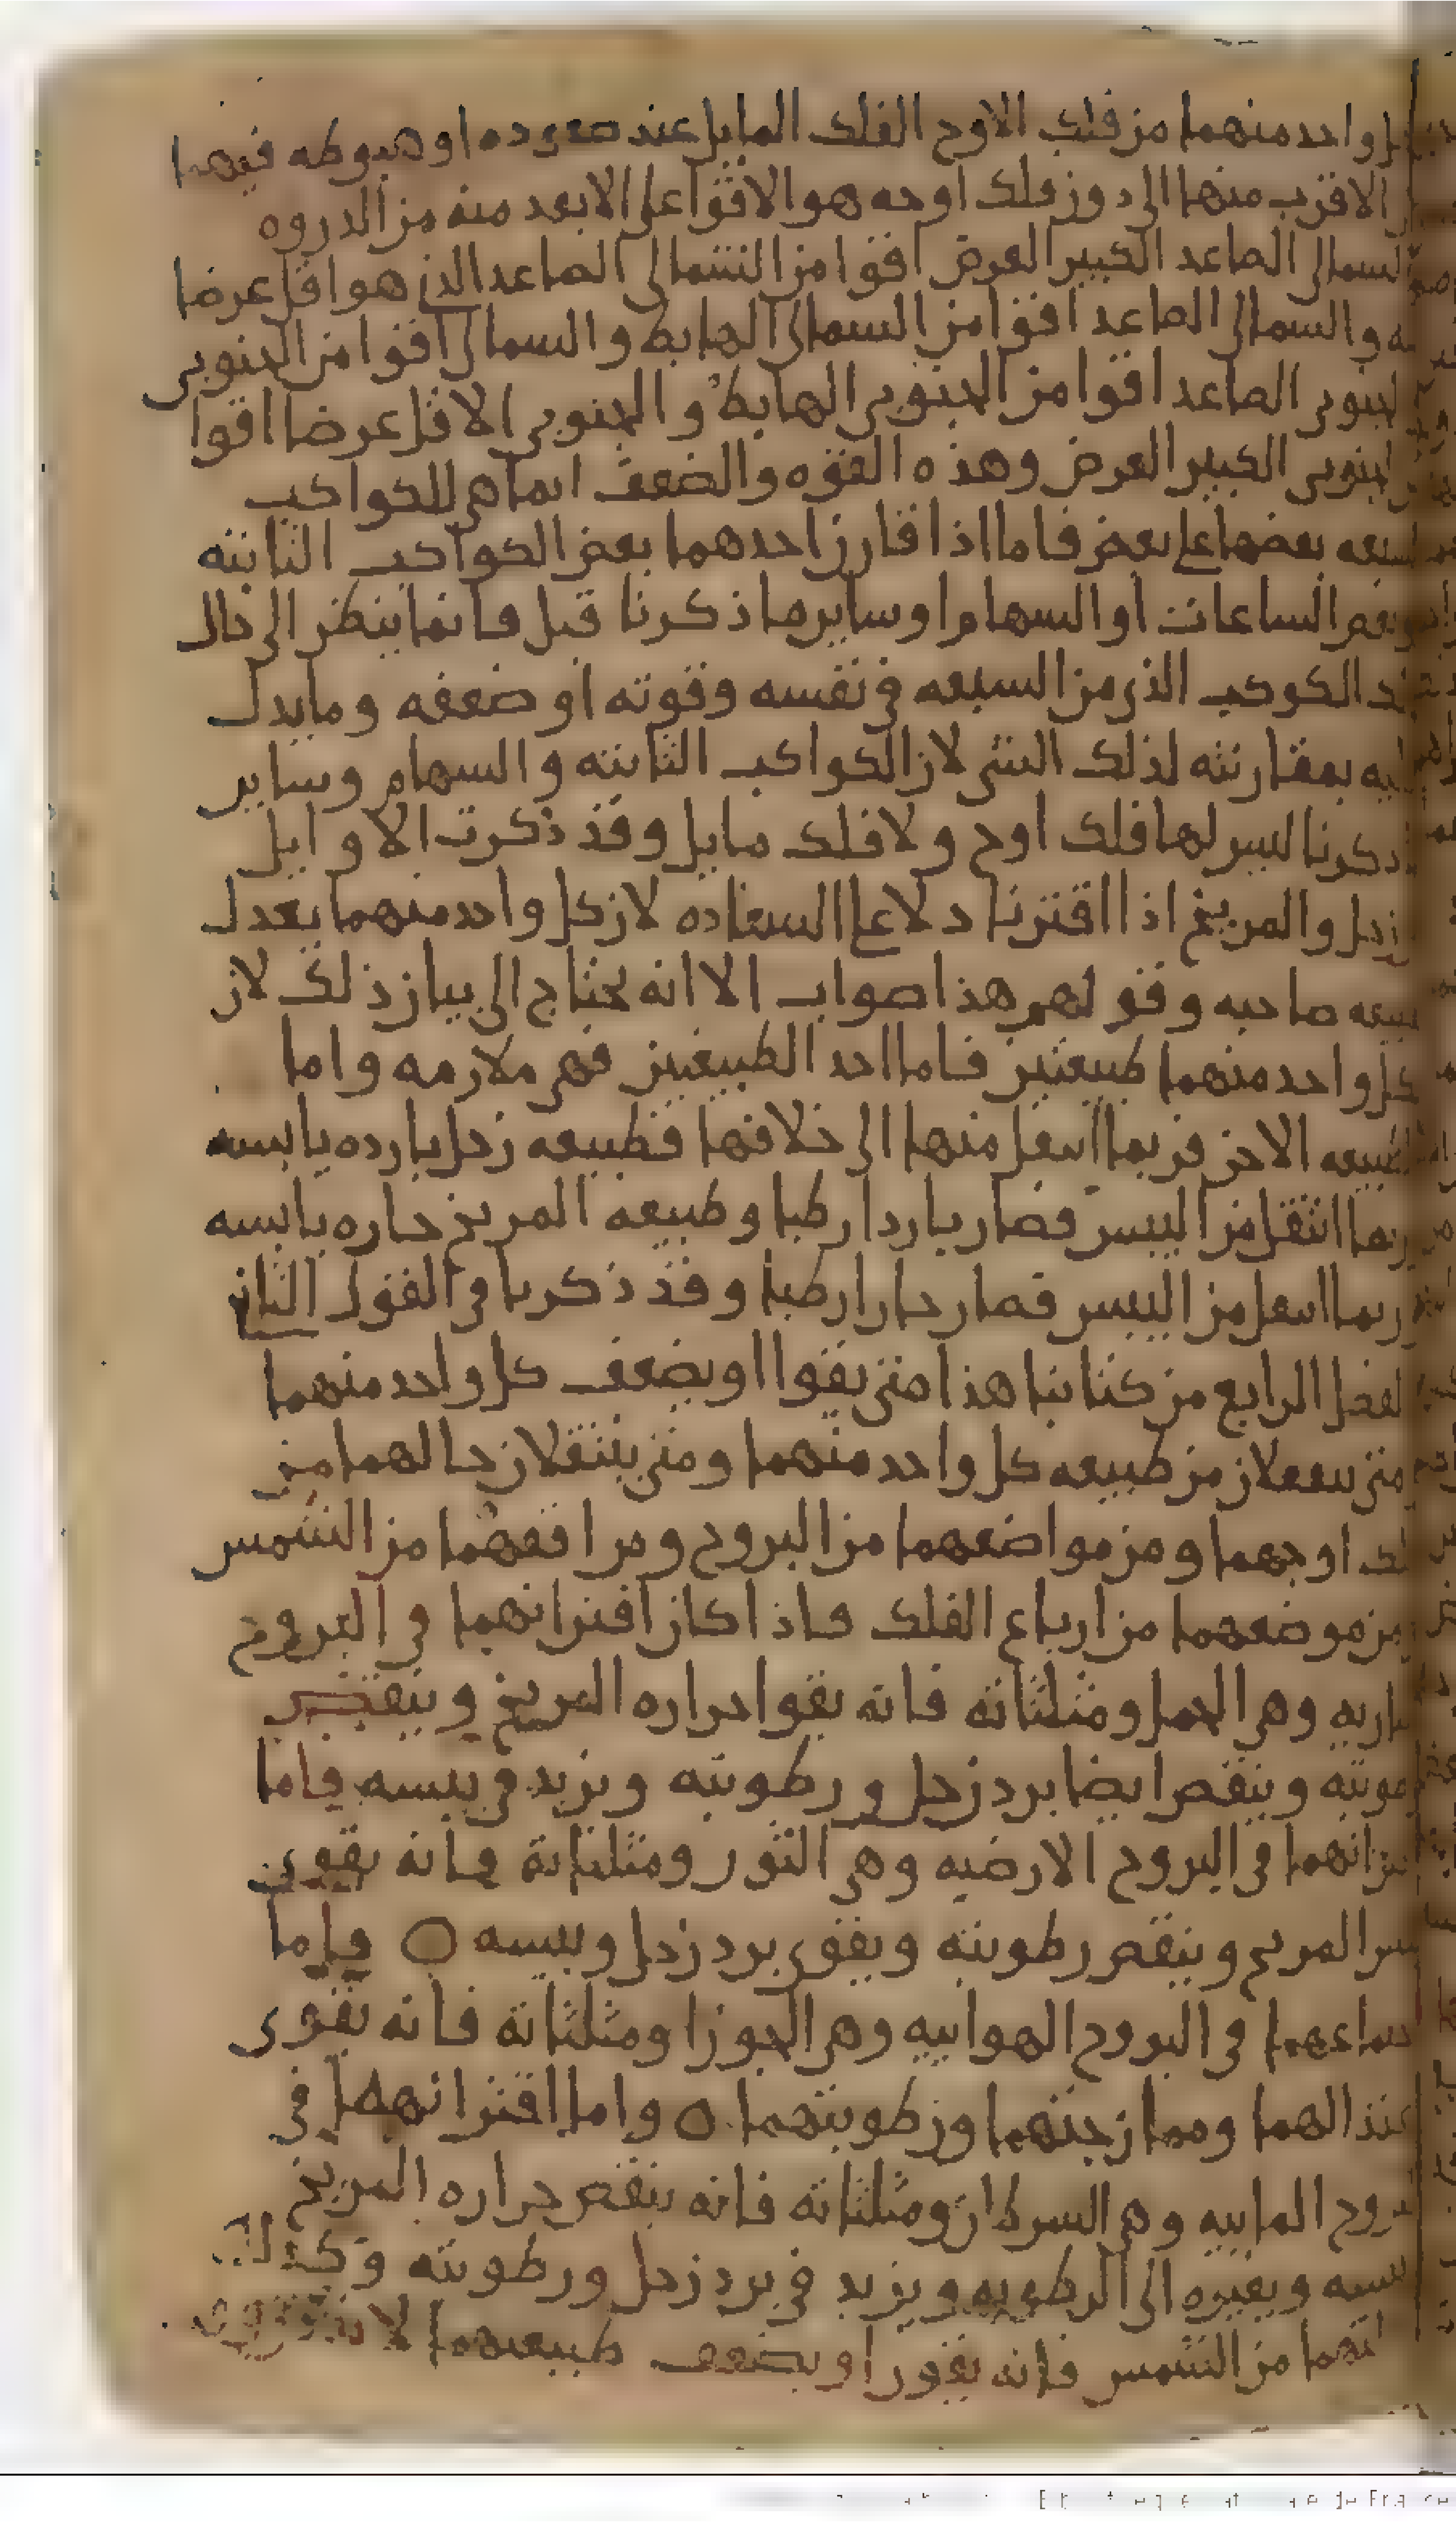 واحد منهما من فلك الاوج الفلك المايل عند صعوده او هبوطه فيهما
الاقرب منهما الى دون فلك اوجه هو الاقوا على الابعد منه من الدروه
السمالى الصاعد الكبير العرض اقوا من الشمالى الصاعد الذى هو اقل عرضا
والسمالى الصاعد اقوا من السمالى الهابط والسمالى اقوا من الجنوبى
الجنوبى الصاعد اقوا من الجنوبى الهابط والجنوبى الاقل عرضا اقوا
الجنوبى الكبير العرض وهذه القوه والضعف انما هى للكواكب
السبعه بعضها على بعض فاما اذا قارن احدهما بعض الكواكب الثابته
بعض الساعات او السهام او ساير ما ذكرنا قبل فانما ينظر الى حال
الكوكب الذى من السبعه فى نفسه وقوته او ضعفه وما يدل
عليه بمقارنته لذلك الشى لان الكواكب الثابته والسهام وساير
ذكرنا ليس لها فلك اوج ولا فلك مايل وقد ذكرت الاوايل
زحل والمريخ اذا اقترنا دلا على السعاده لان كل واحد منهما يعدل
طبيعه صاحبه وقولهم هذا صواب الا انه يحتاج الى بيان ذلك لان
كل واحد منهما طبيعتين فاما احد الطبيعتين فهى ملازمه واما
الطبيعه الاخرى فربما انتقل منها الى خلافها فطبيعه زحل بارده يابسه
ربما انتقل من اليبس فصار باردا رطبا وطبيعه المريخ حاره يابسه
ربما انتقل من اليبس فصار حارا رطبا وقد ذكرنا فى القول الثانى
الفصل الرابع من كتابنا هذا متى يقوا او يضعف كل واحد منهما
متى ينتقلان من طبيعه كل واحد منهما ومتى ينتقلان حالهما من
فلك اوجهما ومن مواضعهما من البروج ومواقعهما من الشمس
من موضعهما من ارباع الفلك فاذا كان اقترانهما فى البروج
الناريه وهى الحمل ومثلثاته فانه يقوا حراره المريخ وينقص
رطوبته وينقص ايضا برد زحل ورطوبته ويزيد فى يبسه فاما
اقترانهما فى البروج الارضيه وهى الثور ومثلثاته فانه يقوى
يبس المريخ وينقص رطوبته ويقوى برد زحل ويبسه ○ فاما
اجتماعهما فى البروج الهوائيه وهى الجوزا ومثلثاته فانه يقوى
اعتدالهما وممازجتهما ورطوبتهما ٥ واما اقترانهما فى
البروج المائيه وهى السرطان ومثلثاته فانه ينقص حراره المريخ
يبسه ويغيره الى الرطوبه ويزيد فى برد زحل ورطوبته وكذلك
من الشمس فانه يقوى او يضعف طبيعتهما